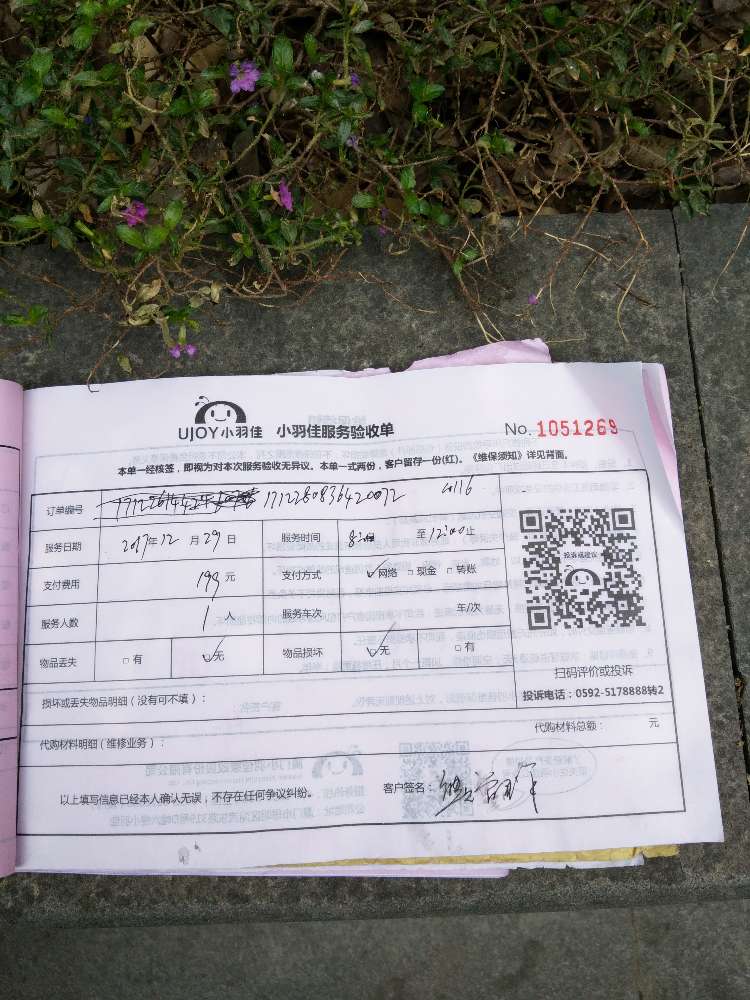 UJOY小羽佳 小羽佳服务验收单 No. 1051269
本单一经核签，即视为对本次服务验收无异议。本单一式两份，客户留存一份(红)。《维保须知》详见背面。
订单编号 1712280836420072
服务日期 2017年12月29日 服务时间 8:00至12:00止
投诉或建议
支付费用 199元 支付方式 ☑网络 □现金 □转账
服务人数 1人 服务车次 车/次
物品丢失 □有 ☑无 物品损坏 ☑无 □有
扫码评价或投诉
损坏或丢失物品明细（没有可不填）：
投诉电话：0592-5178888转2
代购材料明细（维修业务）： 代购材料总额： 元
以上填写信息已经本人确认无误，不存在任何争议纠纷。 客户签名：